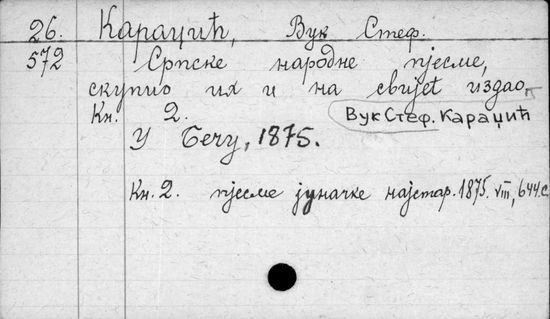 26. Караџић, Вук Стеф.
572 Српске народне пјесме,
скупио их и на свијет издао
Кн. 2. Вук Стеф. Караџић
У Бечу, 1875.
Кн. 2. пјесме јуначке најстар. 1875. VIII, 644 с.